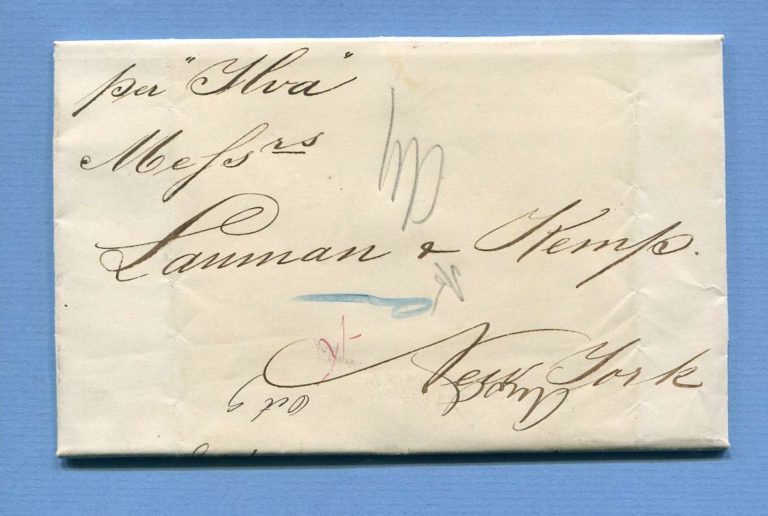 per "Ilva"
Messrs
Lanman & Kemp.
New York
Oct 9